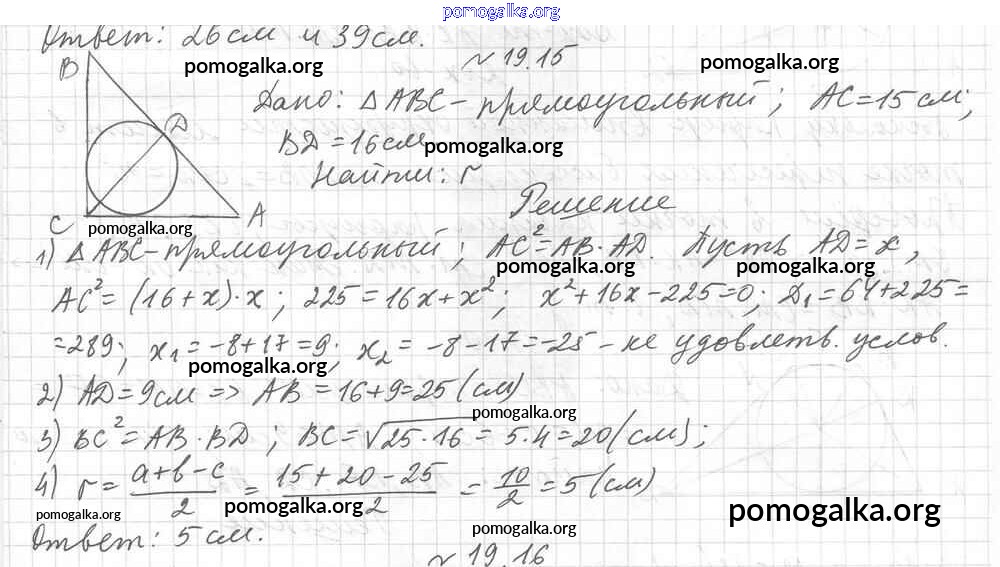 pomogalka.org
Ответ: 26 см и 39 см.
№ 19.15
B
pomogalka.org
pomogalka.org
Дано: △ ABC – прямоугольный; AC = 15 см;
D
BD = 16 см
pomogalka.org
Найти: r
C
A
Решение
pomogalka.org
1) △ ABC – прямоугольный; AC² = AB · AD. Пусть AD = x,
pomogalka.org
pomogalka.org
AC² = (16 + x) · x; 225 = 16x + x²; x² + 16x – 225 = 0; D₁ = 64 + 225 =
= 289; x₁ = –8 + 17 = 9; x₂ = –8 – 17 = –25 – не удовлетв. услов.
pomogalka.org
2) AD = 9 см => AB = 16 + 9 = 25 (см)
pomogalka.org
3) BC² = AB · BD; BC = √25 · 16 = 5 · 4 = 20 (см);
4) r = a + b – c / 2 = 15 + 20 – 25 / 2 = 10 / 2 = 5 (см)
pomogalka.org
pomogalka.org
pomogalka.org
pomogalka.org
Ответ: 5 см.
№ 19.16